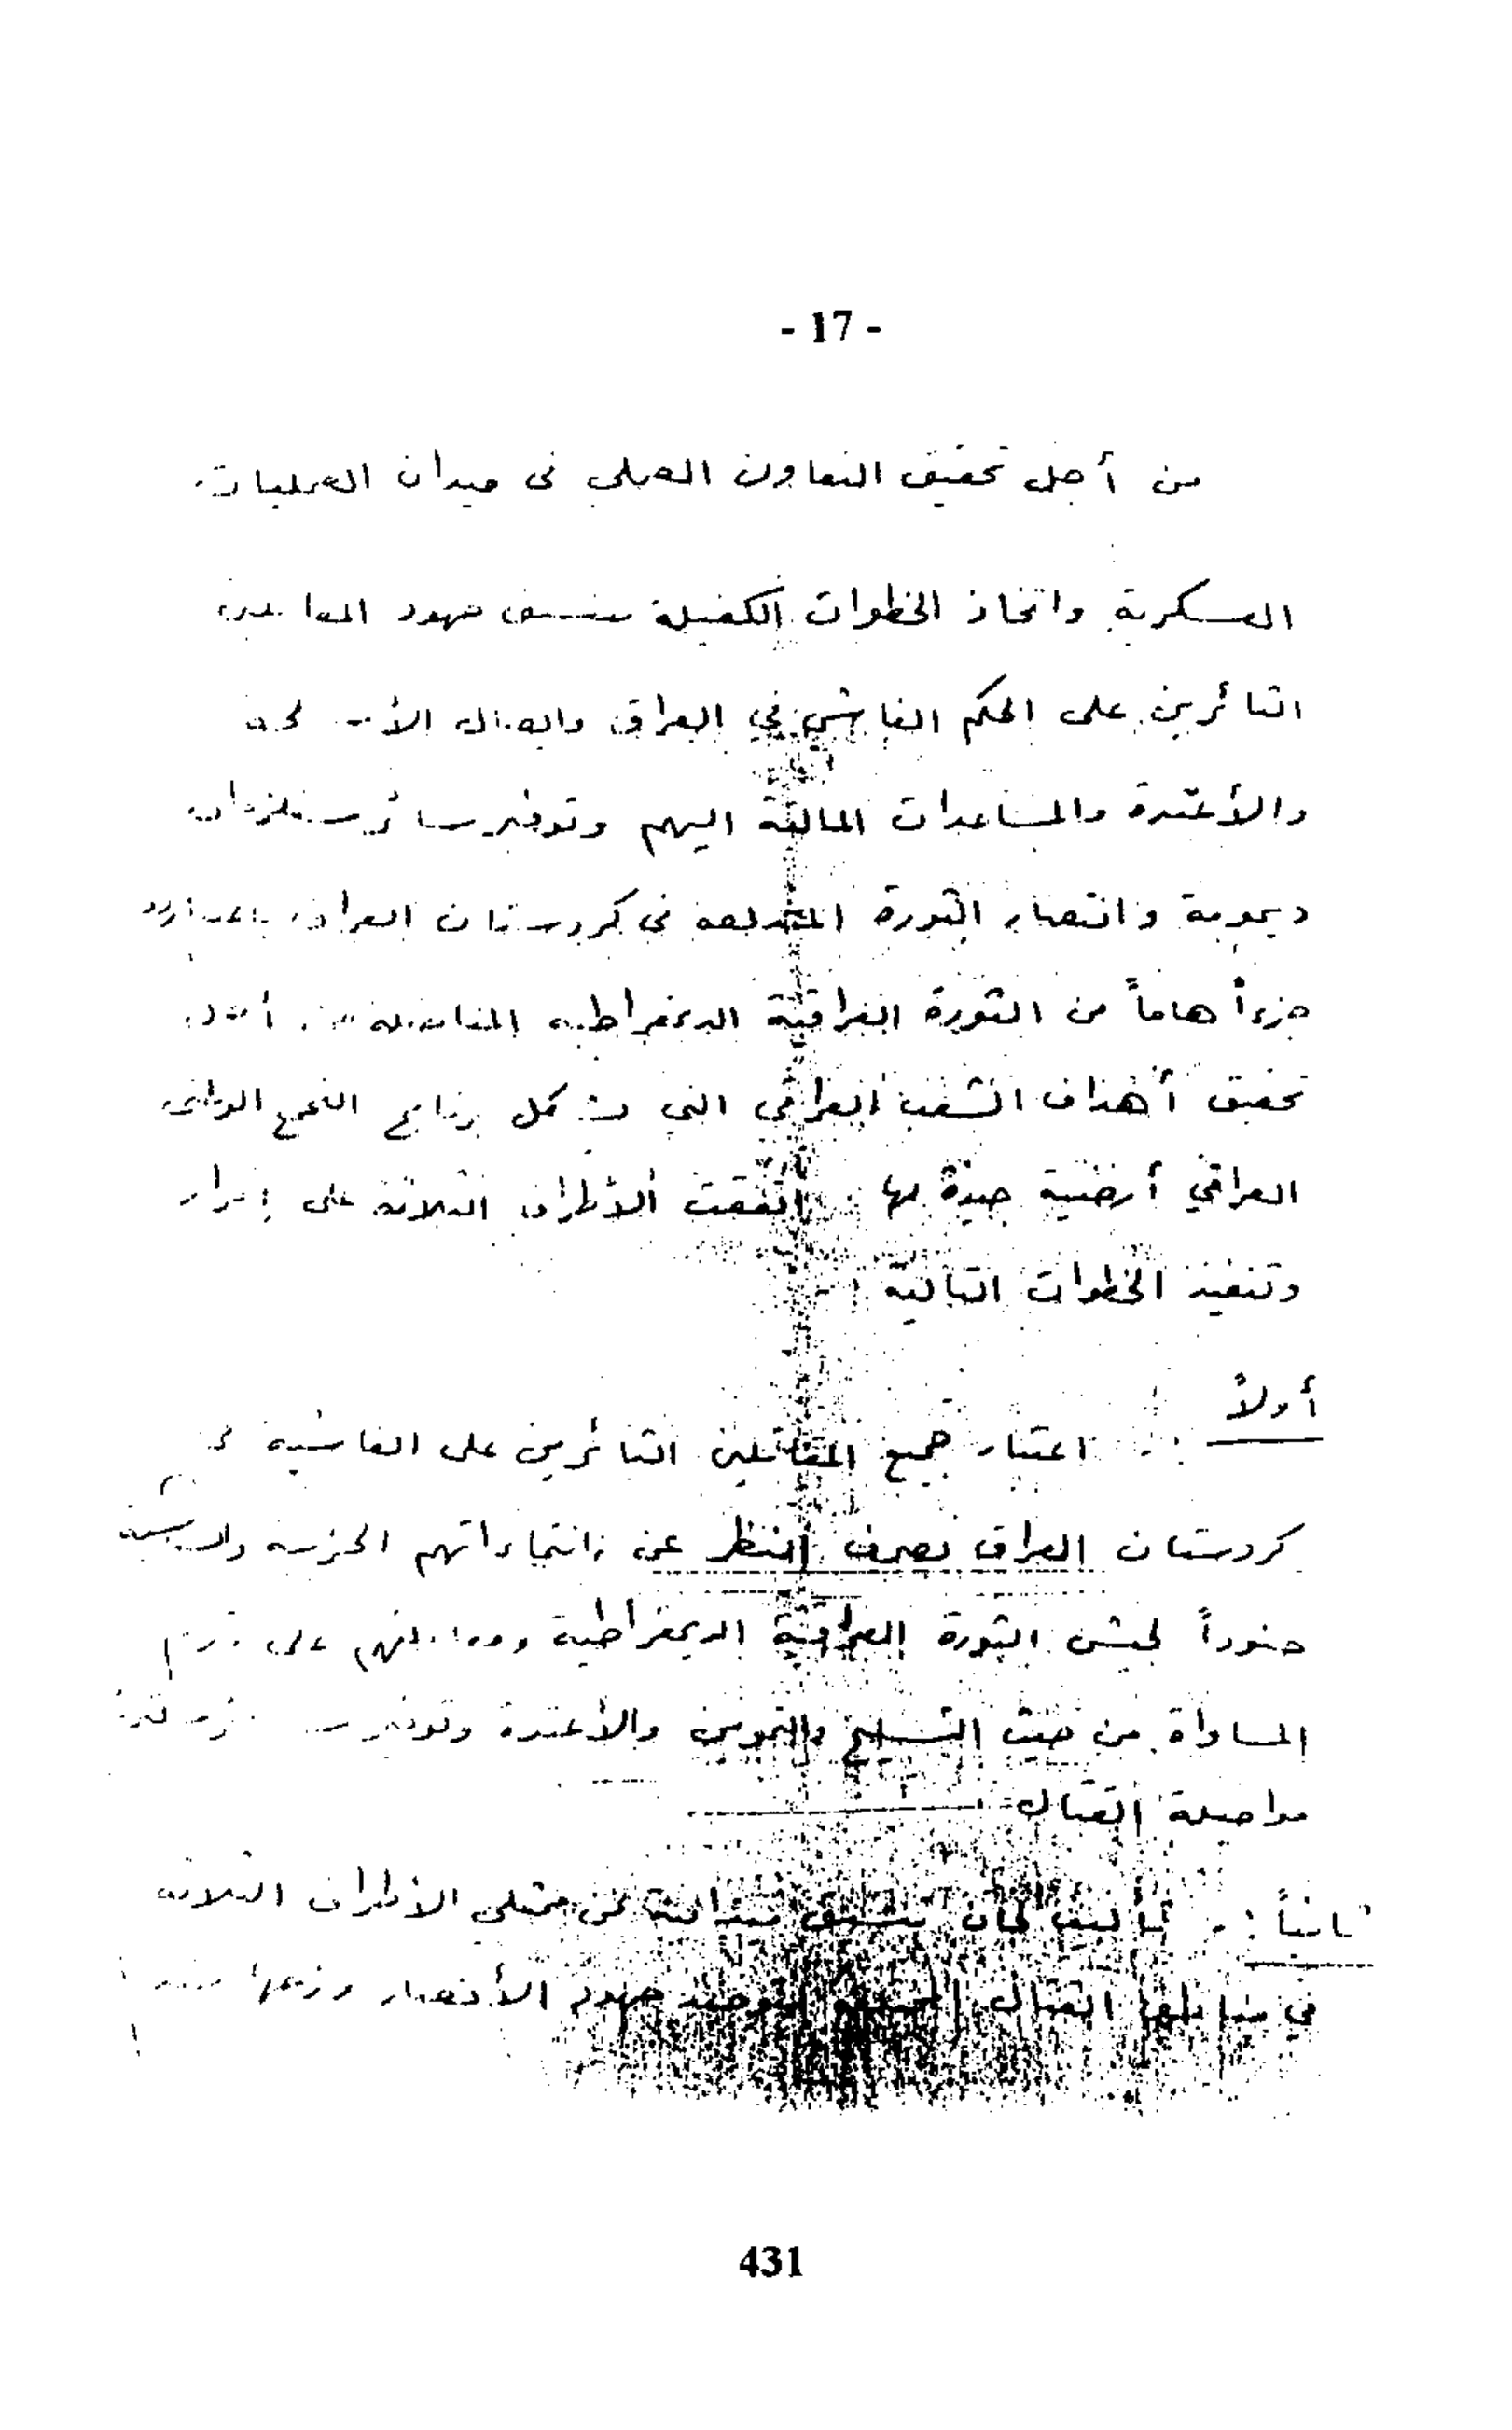 - 17 -
من أجل تحقيق التعاون العملي في ميدان العمليات
العسكرية واتخاذ الخطوات الكفيلة بتنسيق جهود المقاتلين
الثائرين على الحكم الفاشي في العراق وايصال الأسلحة
والأعتدة والمساعدات المالية اليهم وتوفير سائر مستلزمات
ديمومة وانتصار الثورة المندلعة في كردستان العراق باعتبارها
جزءاً هاماً من الثورة العراقية الديمقراطية المناضلة من أجل
تحقيق أهداف الشعب العراقي التي تشكل برنامج التجمع الوطني
العراقي أرضية جيدة لها اتفقت الأطراف الثلاثة على إقرار
وتنفيذ الخطوات التالية :-
أولاً :- اعتبار جميع المقاتلين الثائرين على الفاشية في
كردستان العراق بصرف النظر عن انتماءاتهم الحزبية والسياسية
جنوداً لجيش الثورة العراقية الديمقراطية ومعاملتهم على قدم
المساواة من حيث التسليح والتموين والأعتدة وتوفير
مواصلة القتال
ثانياً :- تأليف لجان تنسيق ميدانية من ممثلي الأطراف الثلاثة
في مناطق القتال لتوحيد جهود الأنصار وزجها
431